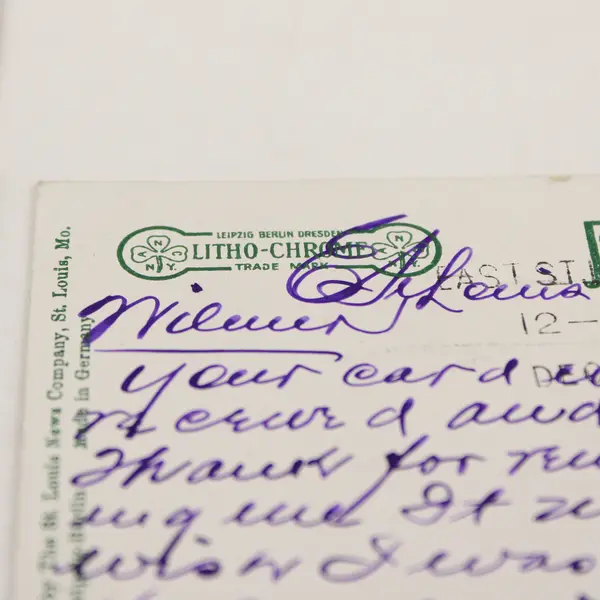 LEIPZIG BERLIN DRESDEN
LITHO-CHROME
TRADE MARK
A N N.Y.
A N C N.Y.
E St Louis
EAST ST.
12-
Wilmer
your card
received and
thank for
ing me It
wish I was
The St. Louis News Company, St. Louis, Mo.
Made in Germany